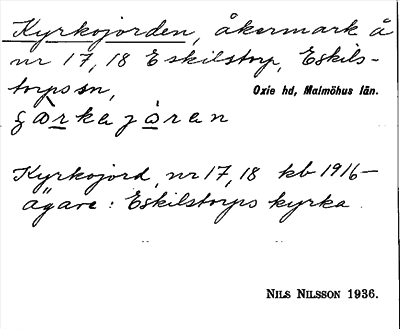 Kyrkojorden, åkermark å
nr 17, 18 Eskilstorp, Eskils-
torps sn, Oxie hd, Malmöhus län.
Kyrkojord nr 17, 18 kb 1916—
ägare: Eskilstorps kyrka.
NILS NILSSON 1936.